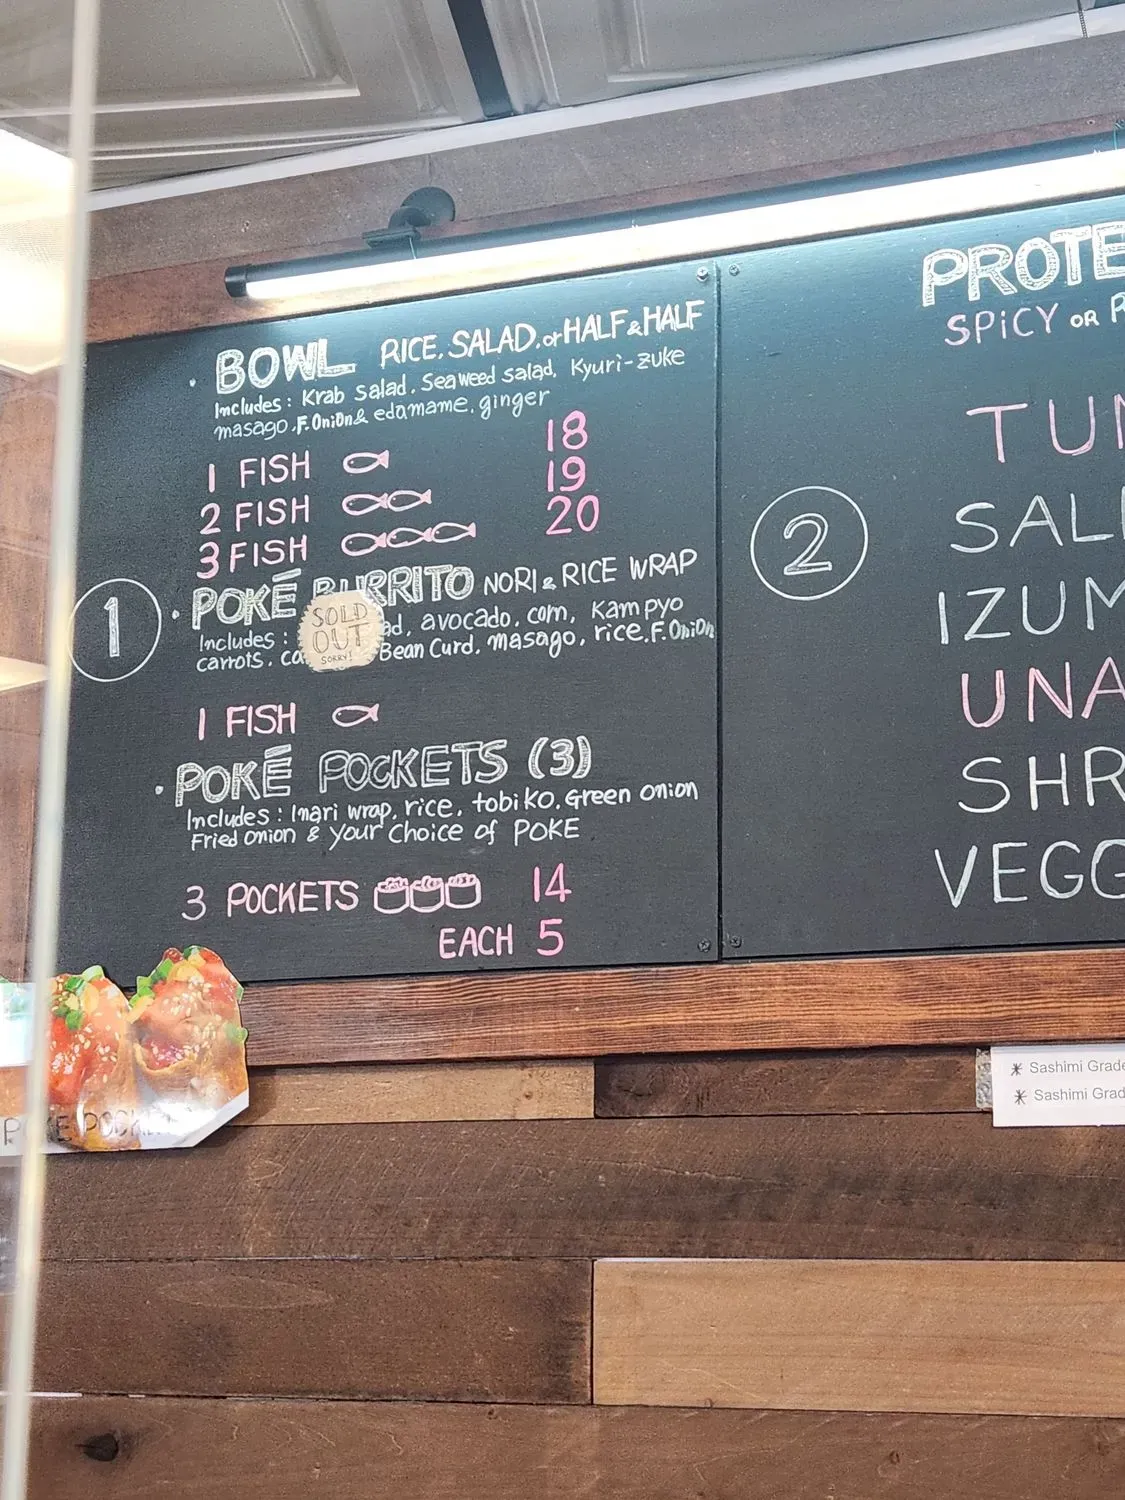 BOWL RICE, SALAD, or HALF & HALF
Includes: Krab Salad, Seaweed Salad, Kyuri-zuke
masago, F.Onion & edamame, ginger
1 FISH 18
2 FISH 19
3 FISH 20
1
POKÉ BURRITO NORI & RICE WRAP
SOLD
OUT
SORRY!
Includes: avocado, corn, Kampyo
carrots, Bean Curd, masago, rice, F.Onion
1 FISH
POKÉ POCKETS (3)
Includes: Inari wrap, rice, tobiko, Green onion
Fried onion & your choice of POKE
3 POCKETS 14
EACH 5
PROTE
SPiCY OR
2
TUN
SAL
IZUM
UNA
SHR
VEGG
POKE POCKET
Sashimi Grade
Sashimi Grad